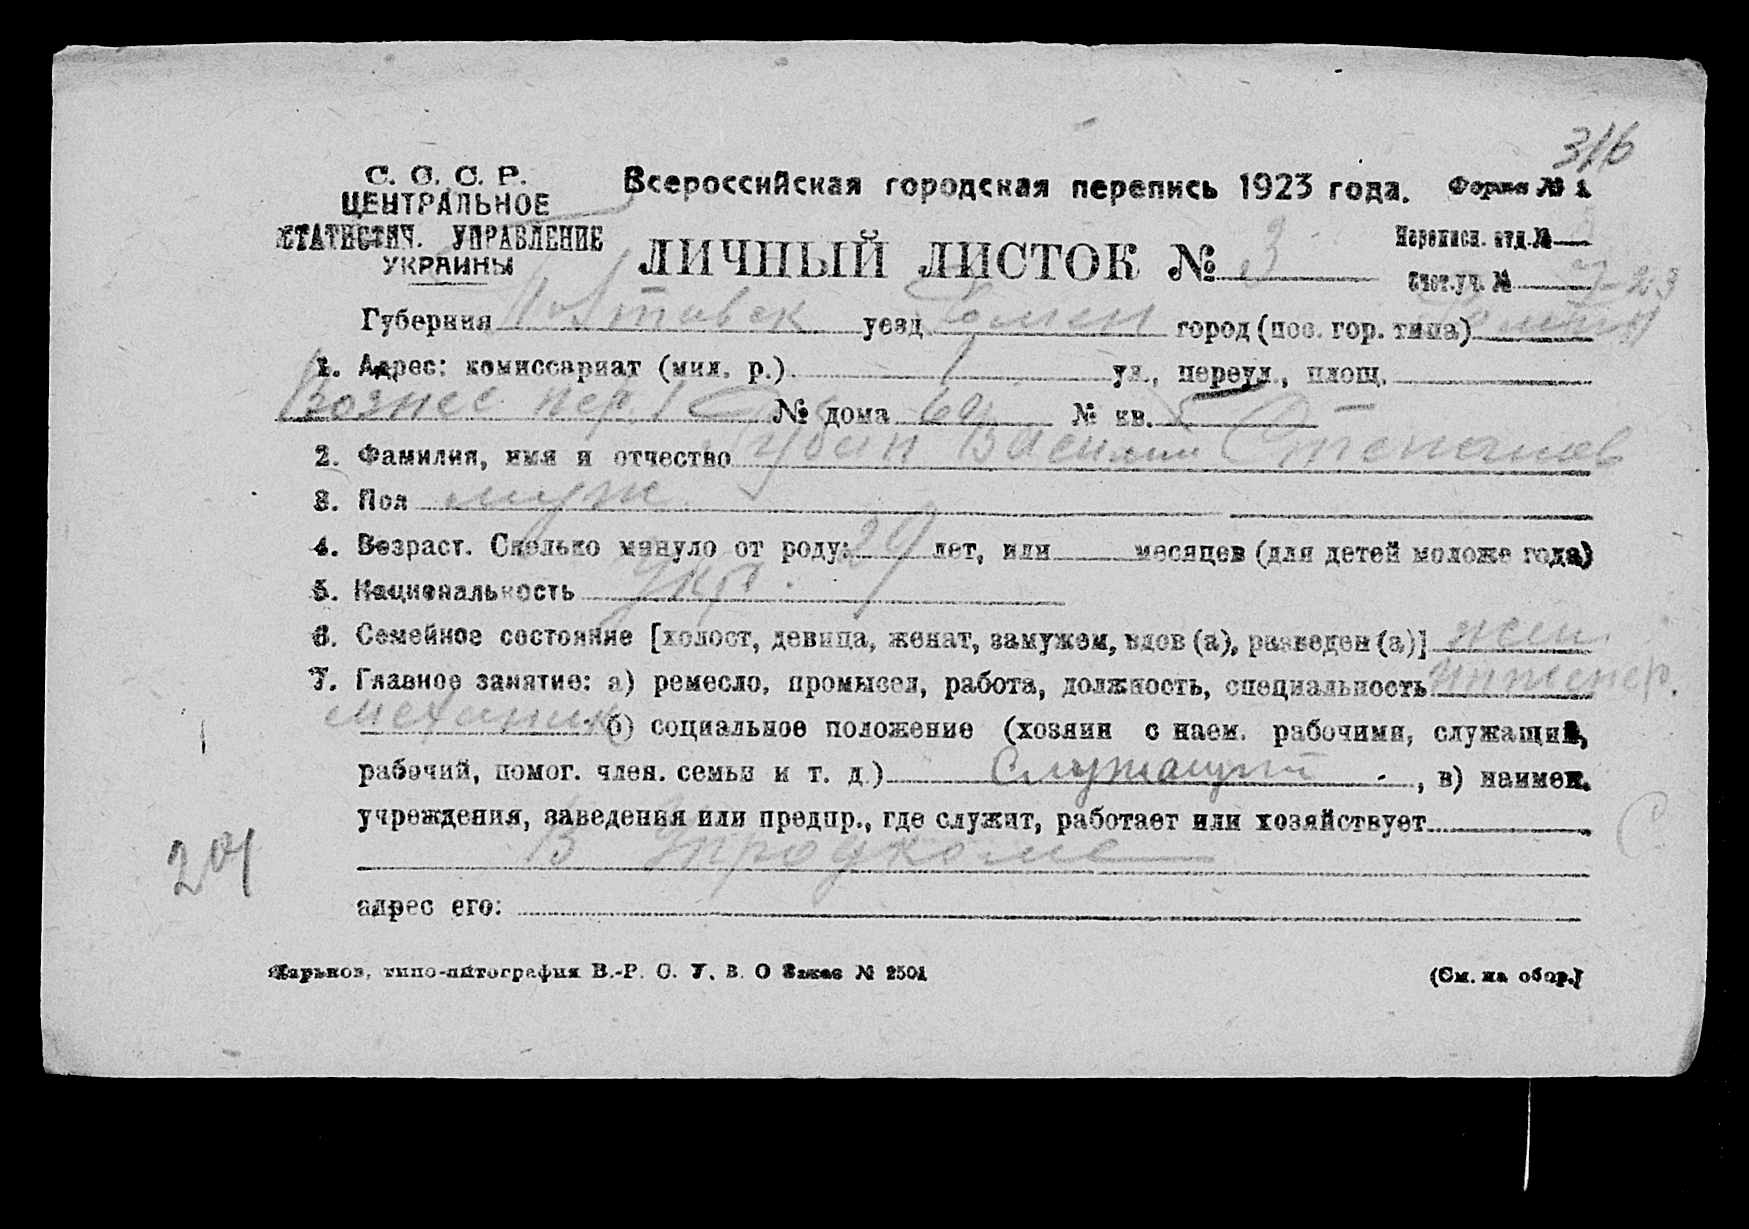 316
С. С. С. Р.
ЦЕНТРАЛЬНОЕ
СТАТИСТИЧ. УПРАВЛЕНИЕ
УКРАИНЫ
Всероссийская городская перепись 1923 года. Форма № 1
ЛИЧНЫЙ ЛИСТОК № 3
Переписн. отд. №
Счет.уч. № 23
Губерния Полтавск уезд Ромен город (пос. гор. типа) Ромны
1. Адрес: комиссариат (мил. р.) 1 ул., переул., площ.
Вознес пер. 1 № дома 69 № кв.
2. Фамилия, имя и отчество Губин Василий Степанов
3. Пол муж.
4. Возраст. Сколько минуло от роду: 29 лет, или месяцев (для детей моложе года)
5. Национальность Укр.
6. Семейное состояние [холост, девица, женат, замужем, вдов (а), разведен (а)] жен.
7. Главное занятие: а) ремесло, промысел, работа, должность, специальность инженер.
механик б) социальное положение (хозяин с наем. рабочими, служащий,
рабочий, помог. член. семьи и т. д.) Служащий, в) наимен.
учреждения, заведения или предпр., где служит, работает или хозяйствует
В Упродкоме
201
адрес его:
Харьков, типо-литография В.-Р. С. У. В. О Заказ № 2501
(См. на обор.)